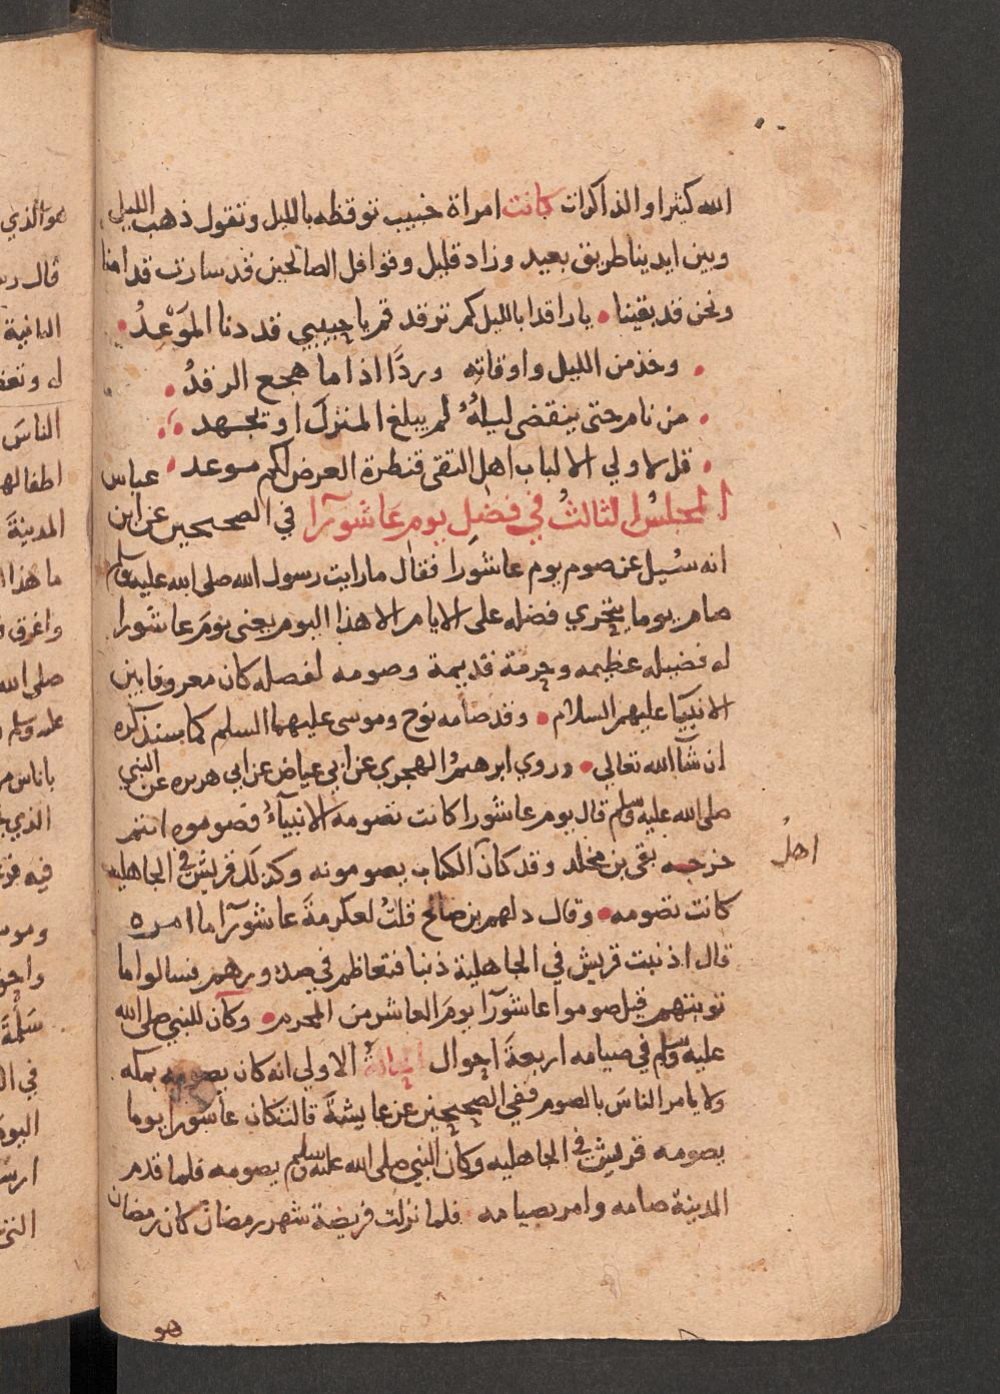 الله كثيرا والذاكرات كانت امراة حبيب توقظه بالليل وتقول ذهب الليل
وبين ايدينا طريق بعيد وزاد قليل وقوافل الصالحين قد سارت قدامنا
ونحن قد بقينا • يا راقدا بالليل كم ترقد قم يا حبيبي قد دنا المَوْعدُ •
• وخذ من الليل واوقاته وردًّا اذا ما هجع الرقدُ •
• من نام حتى ينقضي ليلهُ لم يبلغ المنزل او تجهد
• قل لاولي الالباب اهل التقى قنطرة العرض لكم موعد •
المجلسُ الثالثُ في فضلِ يوم عاشورآرا في الصحيحين عن ابن عباس
انه سُيل عن صوم يوم عاشورا فقال ما رايت رسول الله صلى الله عليه وسلم
صام يوما يتحري فضله على الايام الا هذا اليوم يعني يومَ عاشورا
له فضيله عظيمه وحرمة قديمة وصومه لفضله كان معروفا بين
الانبيَا عليهم السلام • وقد صامه نوح وموسى عليهما السلم كما سنذكره
ان شآ الله تعالي • وروي ابرهيمُ الهجري عن ابي عياض عن ابي هريره عن النبي
صلى الله عليه وسلم قال يوم عاشورا كانت تصومه الانبيآءُ فصوموه انتم
خرجه بقي بن مخلد وقد كان الكتاب يصومونه وكذلك قريش في الجاهليه
اهلُ
كانت تصومه • وقال دلهم بن صالح قلتُ لعكرمةَ عاشورآرا ما امره
قال اذنبت قريش في الجاهلية ذنبا فتعاظم في صدورهم فسالوا ما
توبتهم قيل صوموا عاشورآ يومَ العاشر من المحرم • وكان للنبي صلى الله
عليه وسلم في صيامه اربعةَ احوال الحالةُ الاولي انه كان يصومه بمكه
ولا يامر الناسَ بالصوم ففي الصحيحين عن عايشةَ قالت كان عاشورا يوما
يصومه قريش في الجاهليه وكان النبي صلى الله عليه وسلم يصومه فلما قدم
المدينة صامه وامر بصيامه فلما نزلت فريضة شهر رمضان كان رمضان
هو
هو الذي
الناسَ
المدينةَ
ما هذا
صلى الله
وموسى
سَلَمَةَ